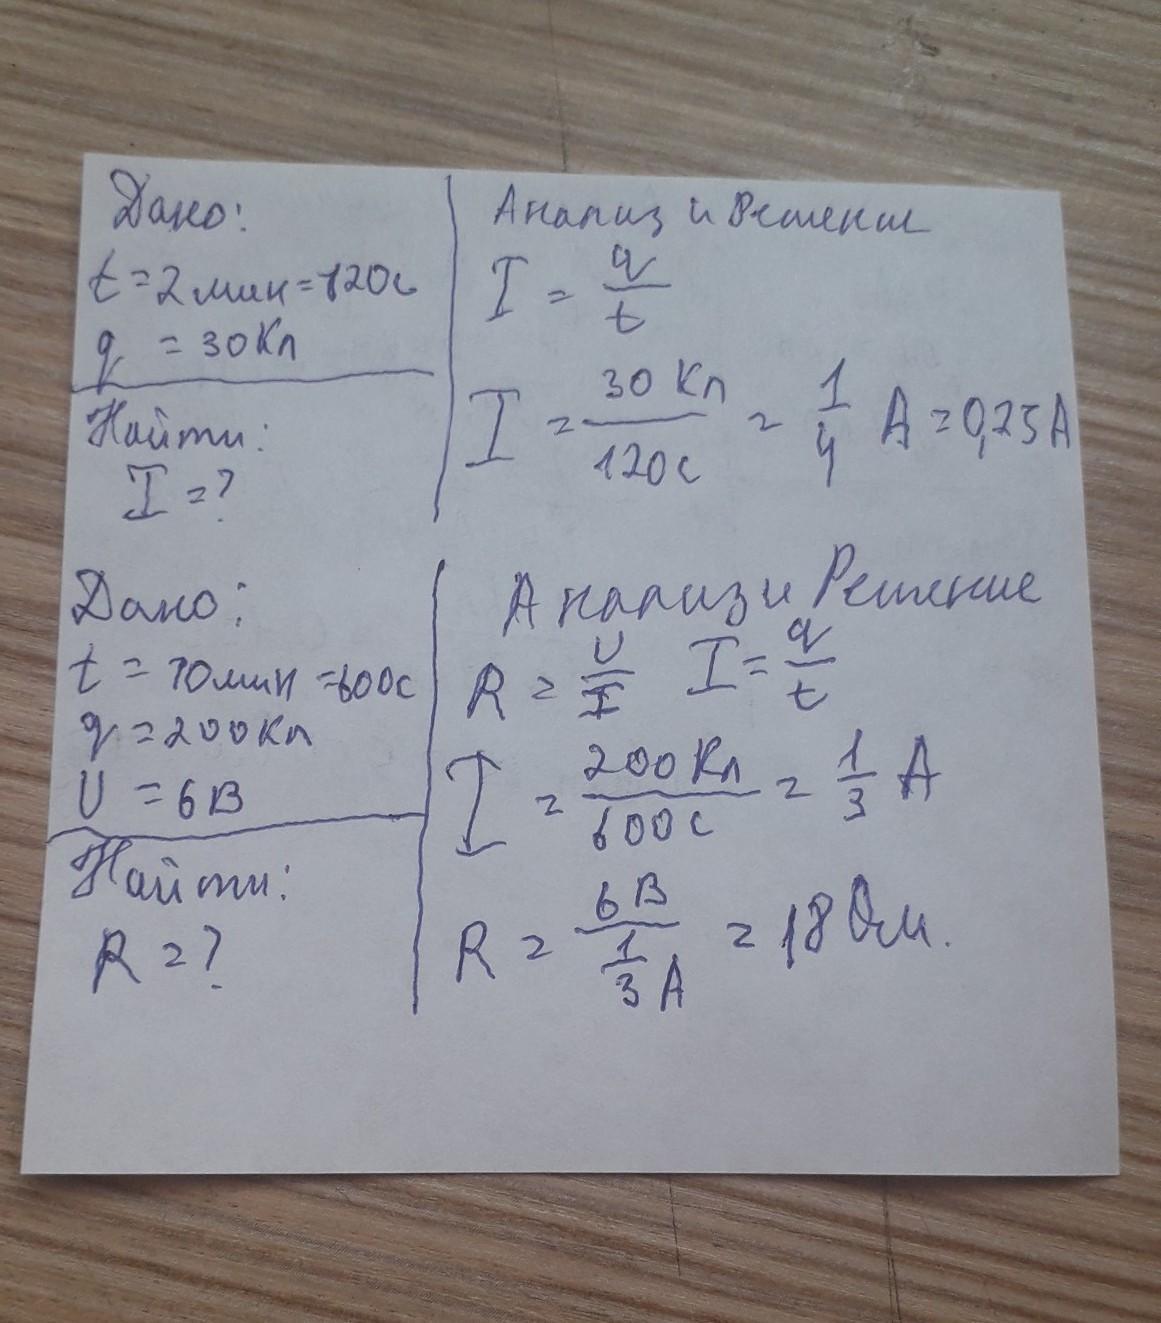 Дано:
t = 2 мин = 120с
q = 30 Кл
Найти:
I = ?
Анализ и Решение
I = q/t
I = 30 Кл/120с = 1/4 А = 0,25 А
Дано:
t = 10 мин = 600с
q = 200 Кл
U = 6 В
Найти:
R = ?
Анализ и Решение
R = U/I I = q/t
I = 200 Кл/600с = 1/3 А
R = 6 В/1/3 А = 18 Ом.